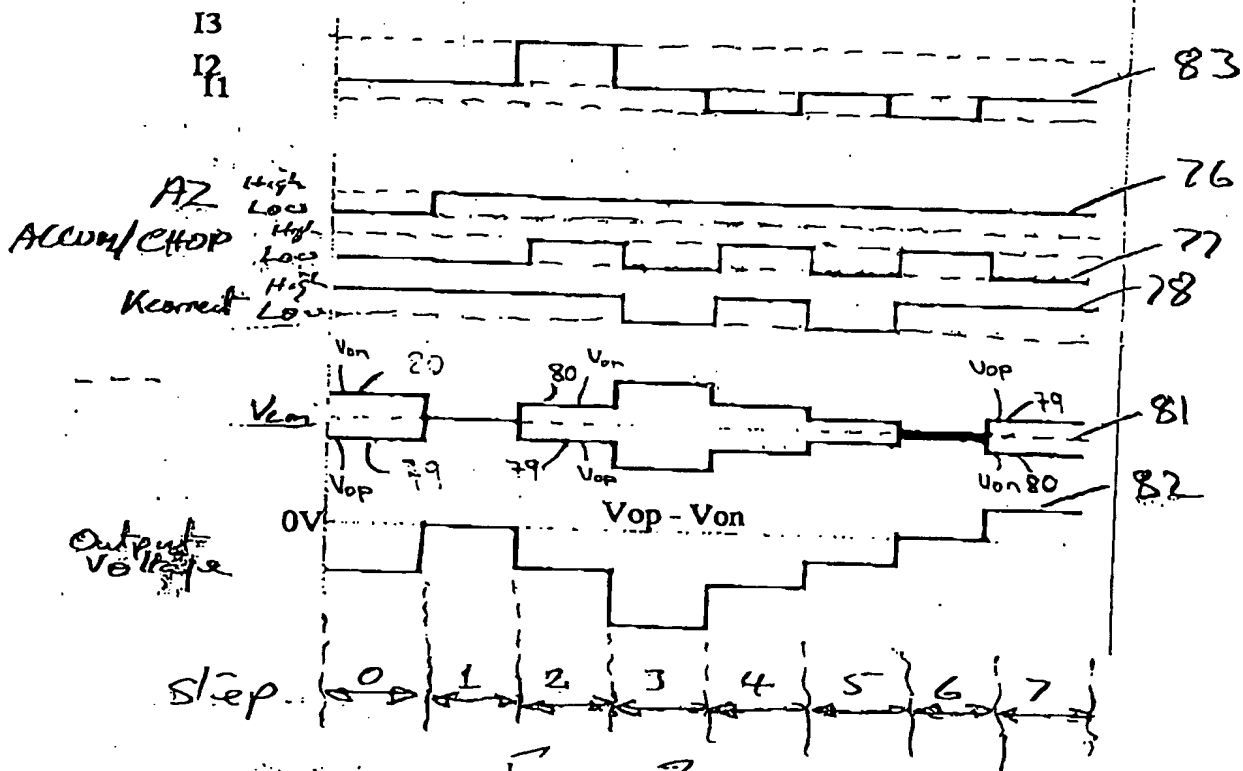 I3
I2
I1
83
AZ High
Low
76
ACCUM/CHOP High
Low
77
Kcorrect High
Low
78
Von 80
80 Von
Vop
79
Vcm
81
Vop 79
79 Vop
Von 80
82
0V
Vop - Von
Output
Voltage
Step 0 1 2 3 4 5 6 7